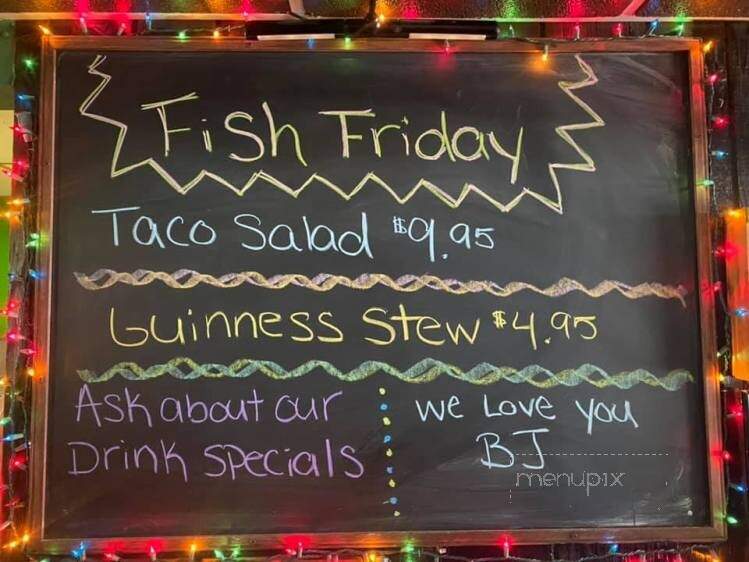 Fish Friday
Taco Salad $9.95
Guinness Stew $4.95
Ask about our
Drink specials
we Love you
BJ
menupix